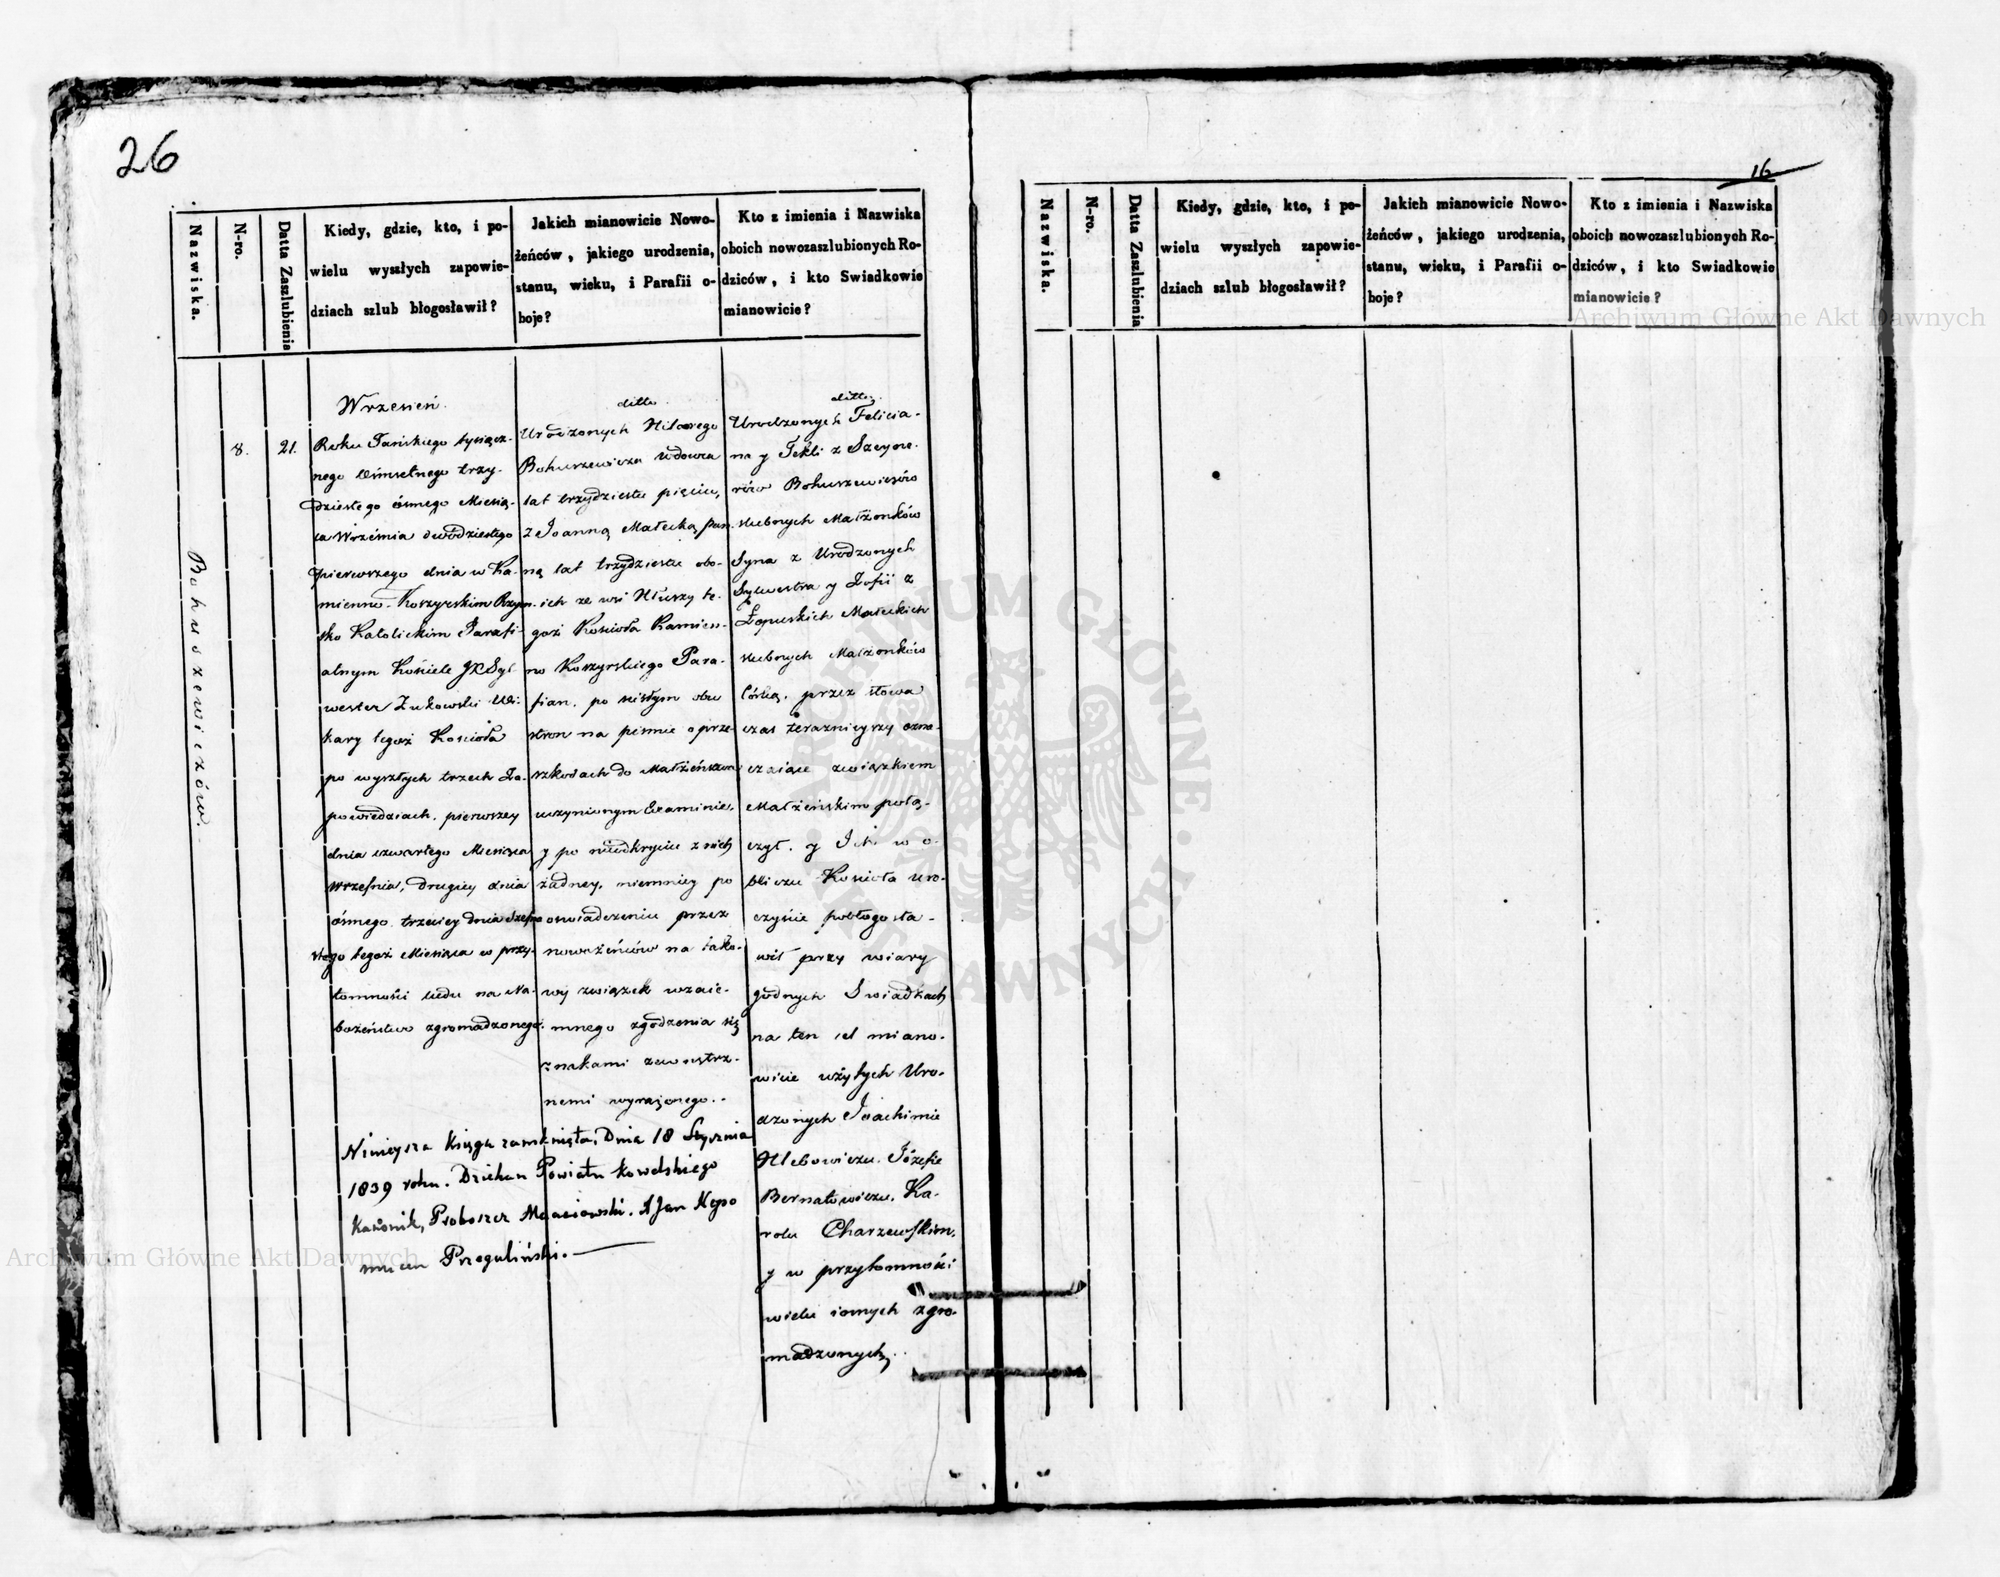 26
Nazwiska.
N-ro.
Datta Zaślubienia
Kiedy, gdzie, kto, i po-
wielu wyszłych zapowie-
dziach szlub błogosławił?
Jakich mianowicie Nowo-
żeńców, jakiego urodzenia,
stanu, wieku, i Parafii o-
boje?
Kto z imienia i Nazwiska
oboich nowozaszlubionych Ro-
dziców, i kto Swiadkowie
mianowicie?
Bohuszewiczów.
8.
21.
Wrzesień.
Roku Pańskiego tysiącz-
nego ośmsetnego trzy-
dziestego ósmego Miesią-
ca Września dwódziestego
pierwszego dnia w Ka-
mienno-Koszyrskim Rzym-
sko Katolickim Parafi-
alnym Kościele JX Syl-
wester Żukowski Wi-
kary tegoż Kościoła
po wyszłych trzech Za-
powiedziach, pierwszey
dnia czwartego Miesiąca
Września, drugiey dnia
ósmego trzeciey dnia szesna
stego tegoż Miesiąca w przy-
tomności ludu na Na-
bożeństwo zgromadzonego.
ditto
Urodzonych Hilarego
Bohuszewicza wdowca
lat trzydziestu pięciu,
z Joanną Małecką pan-
ną lat trzydziestu obo-
ich ze wsi Hłuszy te-
goż Kościoła Kamien-
no Koszyrskiego Para-
fian, po ścisłym obu
stron na piśmie o prze-
szkodach do Małżeństwa
uczynionym Examinie,
y po nieodkryciu z nich
żadney, niemniey po
oswiadczeniu przez
nowożeńców na tako-
wy związek wzaie-
mnego zgodzenia się
znakami zewnętrz-
nemi wyrażonego..
ditto
Urodzonych Felicia-
na y Tekli z
Bohuszewiczów
slubnych Małżonków
Syna z Urodzonych
Sylwestra y Zofii z
Łopuskich Małeckich
slubnych Małżonków
Córką, przez słowa
czas teraznieyszy ozna-
czaiące związkiem
Małżeńskim połą-
czył, y Ich w o-
bliczu Kościoła uro-
czyście pobłogosła-
wił przy wiary
godnych Swiadkach
na ten cel miano-
wicie użytych Uro-
dzonych Joachimie
Hlebowiczu. Józefie
Bernatowiczu, Ka-
rolu Charzewskim,
y w przytomności
wielu innych zgro-
madzonych.
Ninieysza Księga zamknięta, Dnia 18 Stycznia
1839 roku. Dziekan Powiatu Kowelskiego
Kanonik, Proboszcz Maciowski. X Jan Nepo
mucen Przegaliński.
16
Nazwiska.
N-ro.
Datta Zaślubienia
Kiedy, gdzie, kto, i po-
wielu wyszłych zapowie-
dziach szlub błogosławił?
Jakich mianowicie Nowo-
żeńców, jakiego urodzenia,
stanu, wieku, i Parafii o-
boje?
Kto z imienia i Nazwiska
oboich nowozaszlubionych Ro-
dziców, i kto Swiadkowie
mianowicie?
Archiwum Główne Akt Dawnych
Archiwum Główne Akt Dawnych
ARCHIWUM GŁÓWNE AKT DAWNYCH